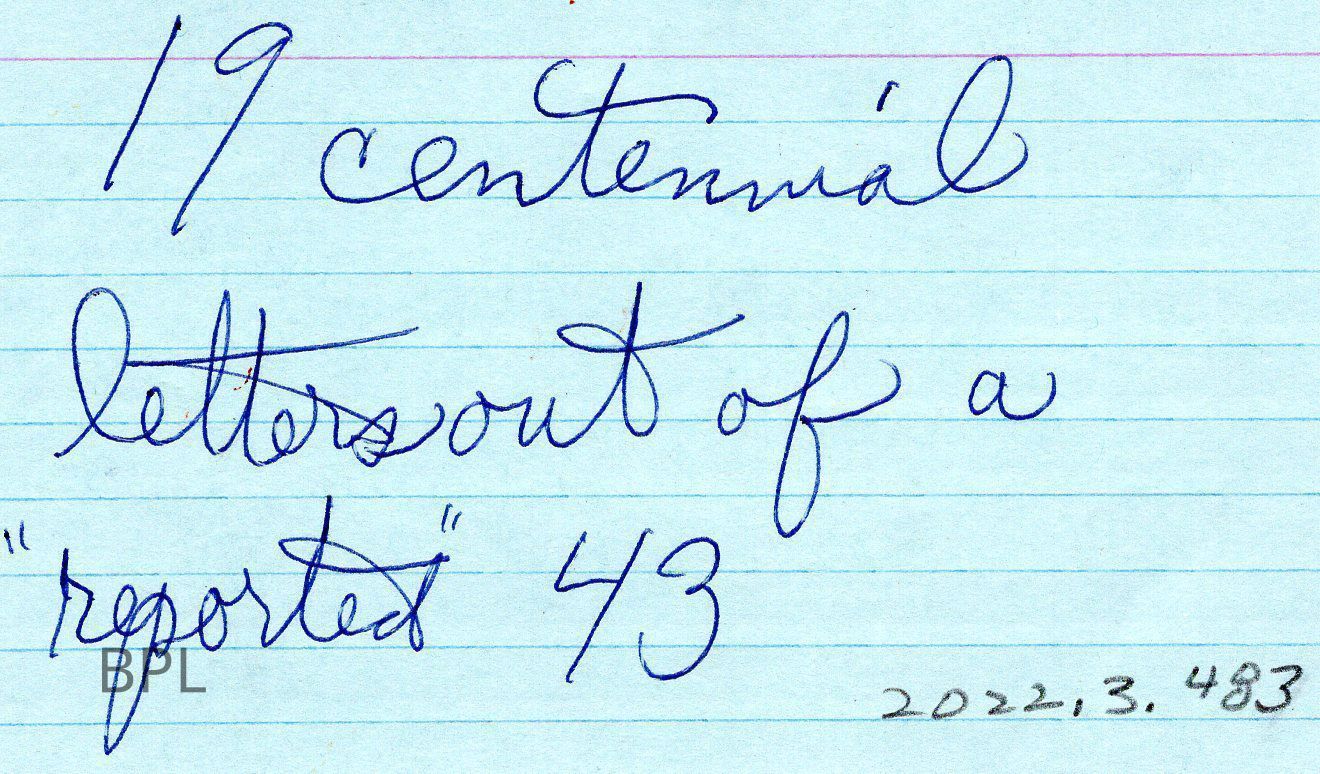 19 centennial
letters out of a
"reported" 43
BPL
2022.3.483